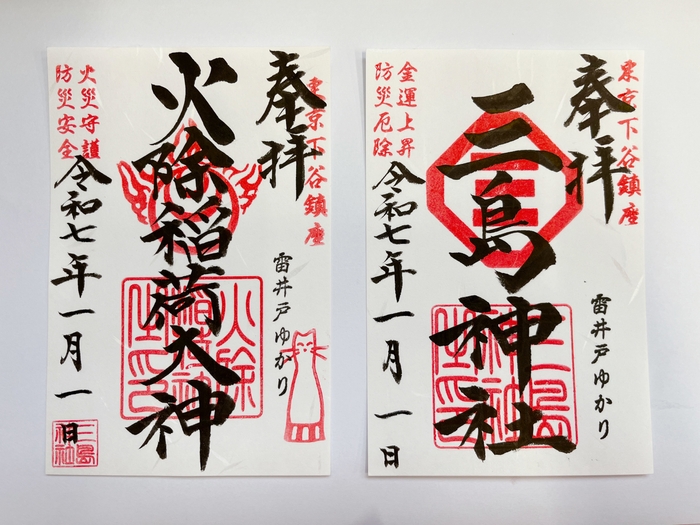 東京下谷鎮座
奉拝
火除稲荷大神
雷井戸ゆかり
火災守護
防災安全
令和七年一月一日
火除稲荷神社之印
三島神社
東京下谷鎮座
奉拝
三島神社
雷井戸ゆかり
金運上昇
防災厄除
令和七年一月一日
三島神社之印